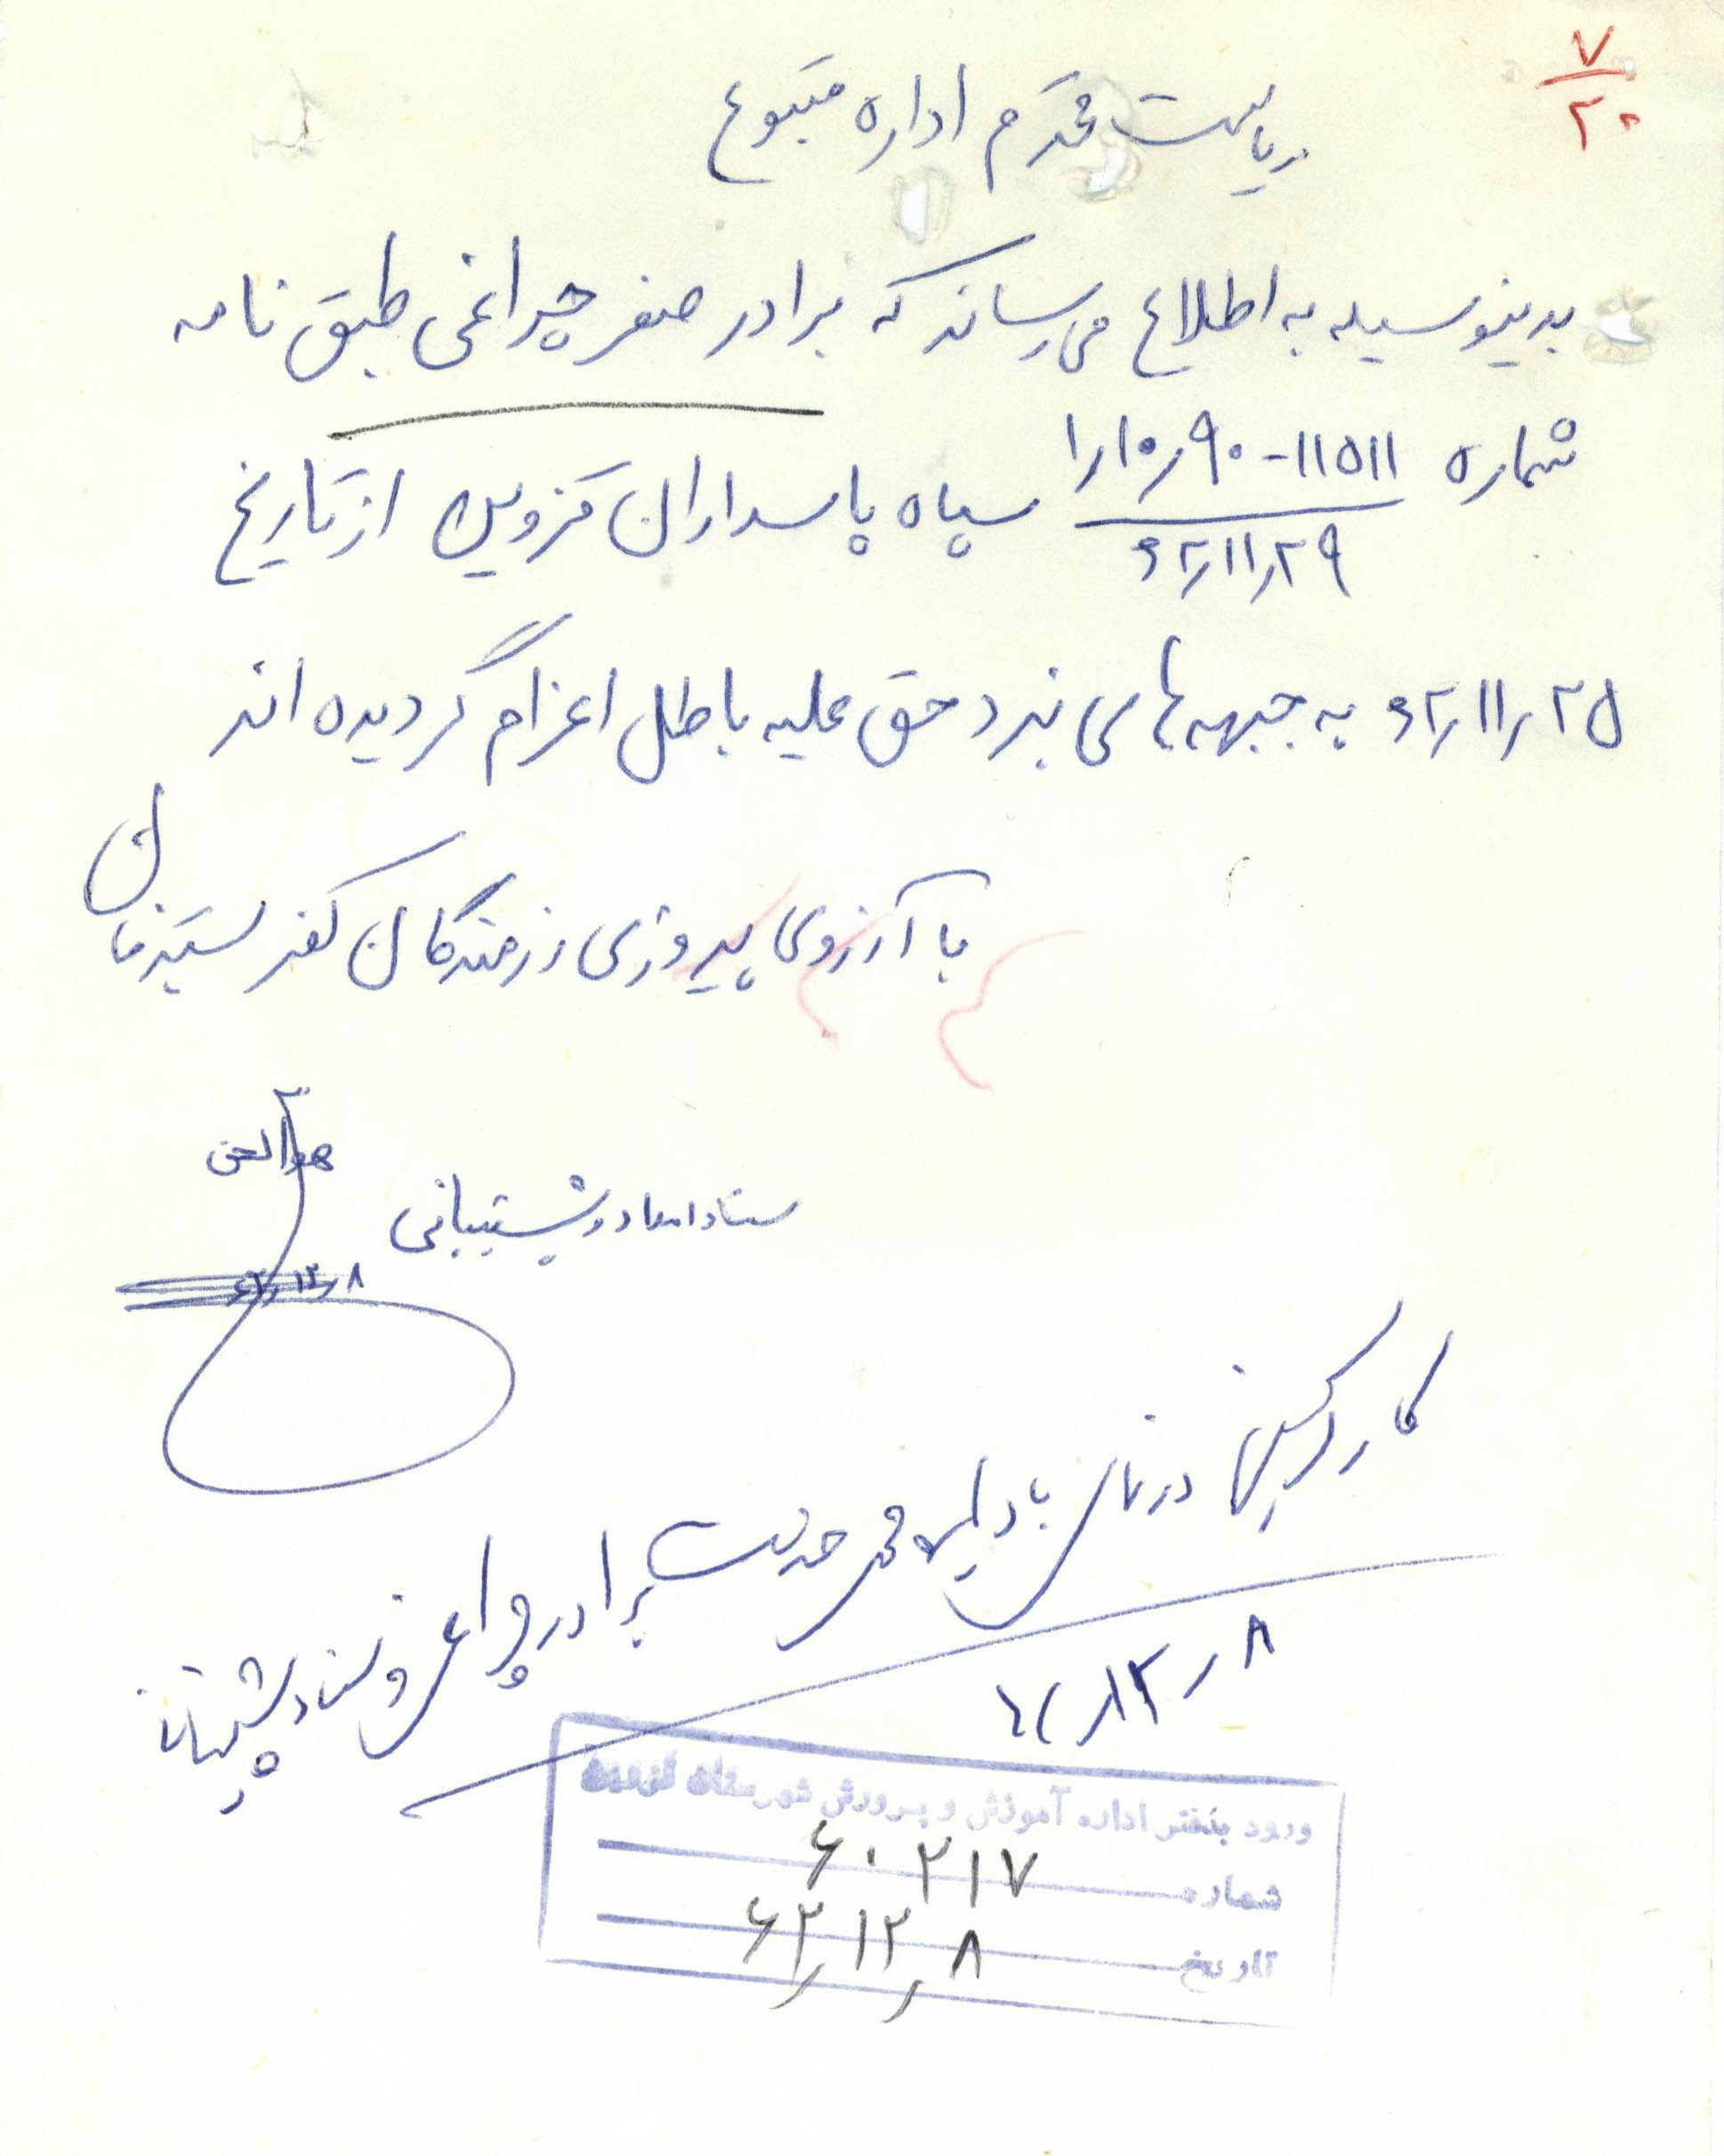 ۷
۲۰
ریاست محترم اداره متبوع
بدینوسیله به اطلاع می رساند که برادر صفر چراغی طبق نامه
شماره ۱۱۵۱۱-۹۰ر۱۰ر۱
۶۲٫۱۱٫۲۹ سپاه پاسداران قزوین از تاریخ
۶۲٫۱۱٫۲۵ به جبهه های نبرد حق علیه باطل اعزام گردیده اند
با آرزوی پیروزی رزمندگان کفر ستیزمان
هوالحق
ستاد امداد و پشتیبانی
۶۲٫۱۲٫۸
کارگزینی
برادر چراغی و ستاد پشتیبانی
۶۲٫۱۲٫۸
ورود بدفتر اداره آموزش و پرورش شهرستان قزوین
شماره ۶۰۲۱۷
تاریخ ۶۲٫۱۲٫۸